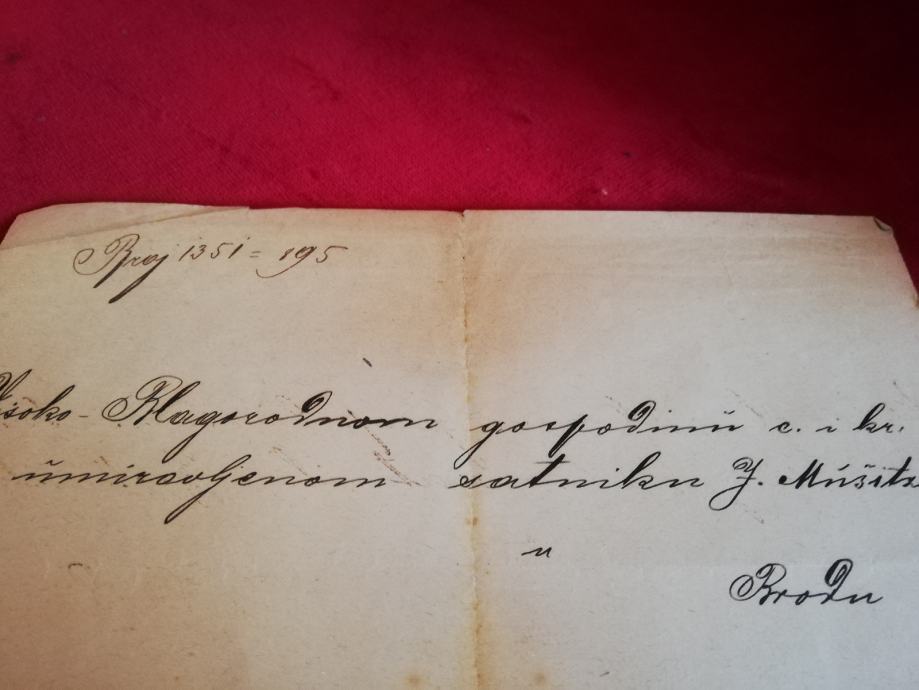 Broj 1351 = 195
Visoko-Blagorodnom gospodinu c. i kr.
umirovljenom satniku J.
u
Brodu